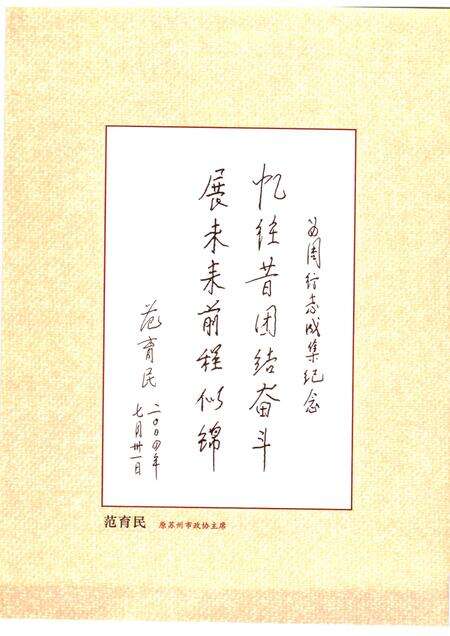 行志成集纪念
忆往昔团结奋斗
展未来前程似锦
范育民
二〇〇四年
七月卅一日
范育民 原苏州市政协主席